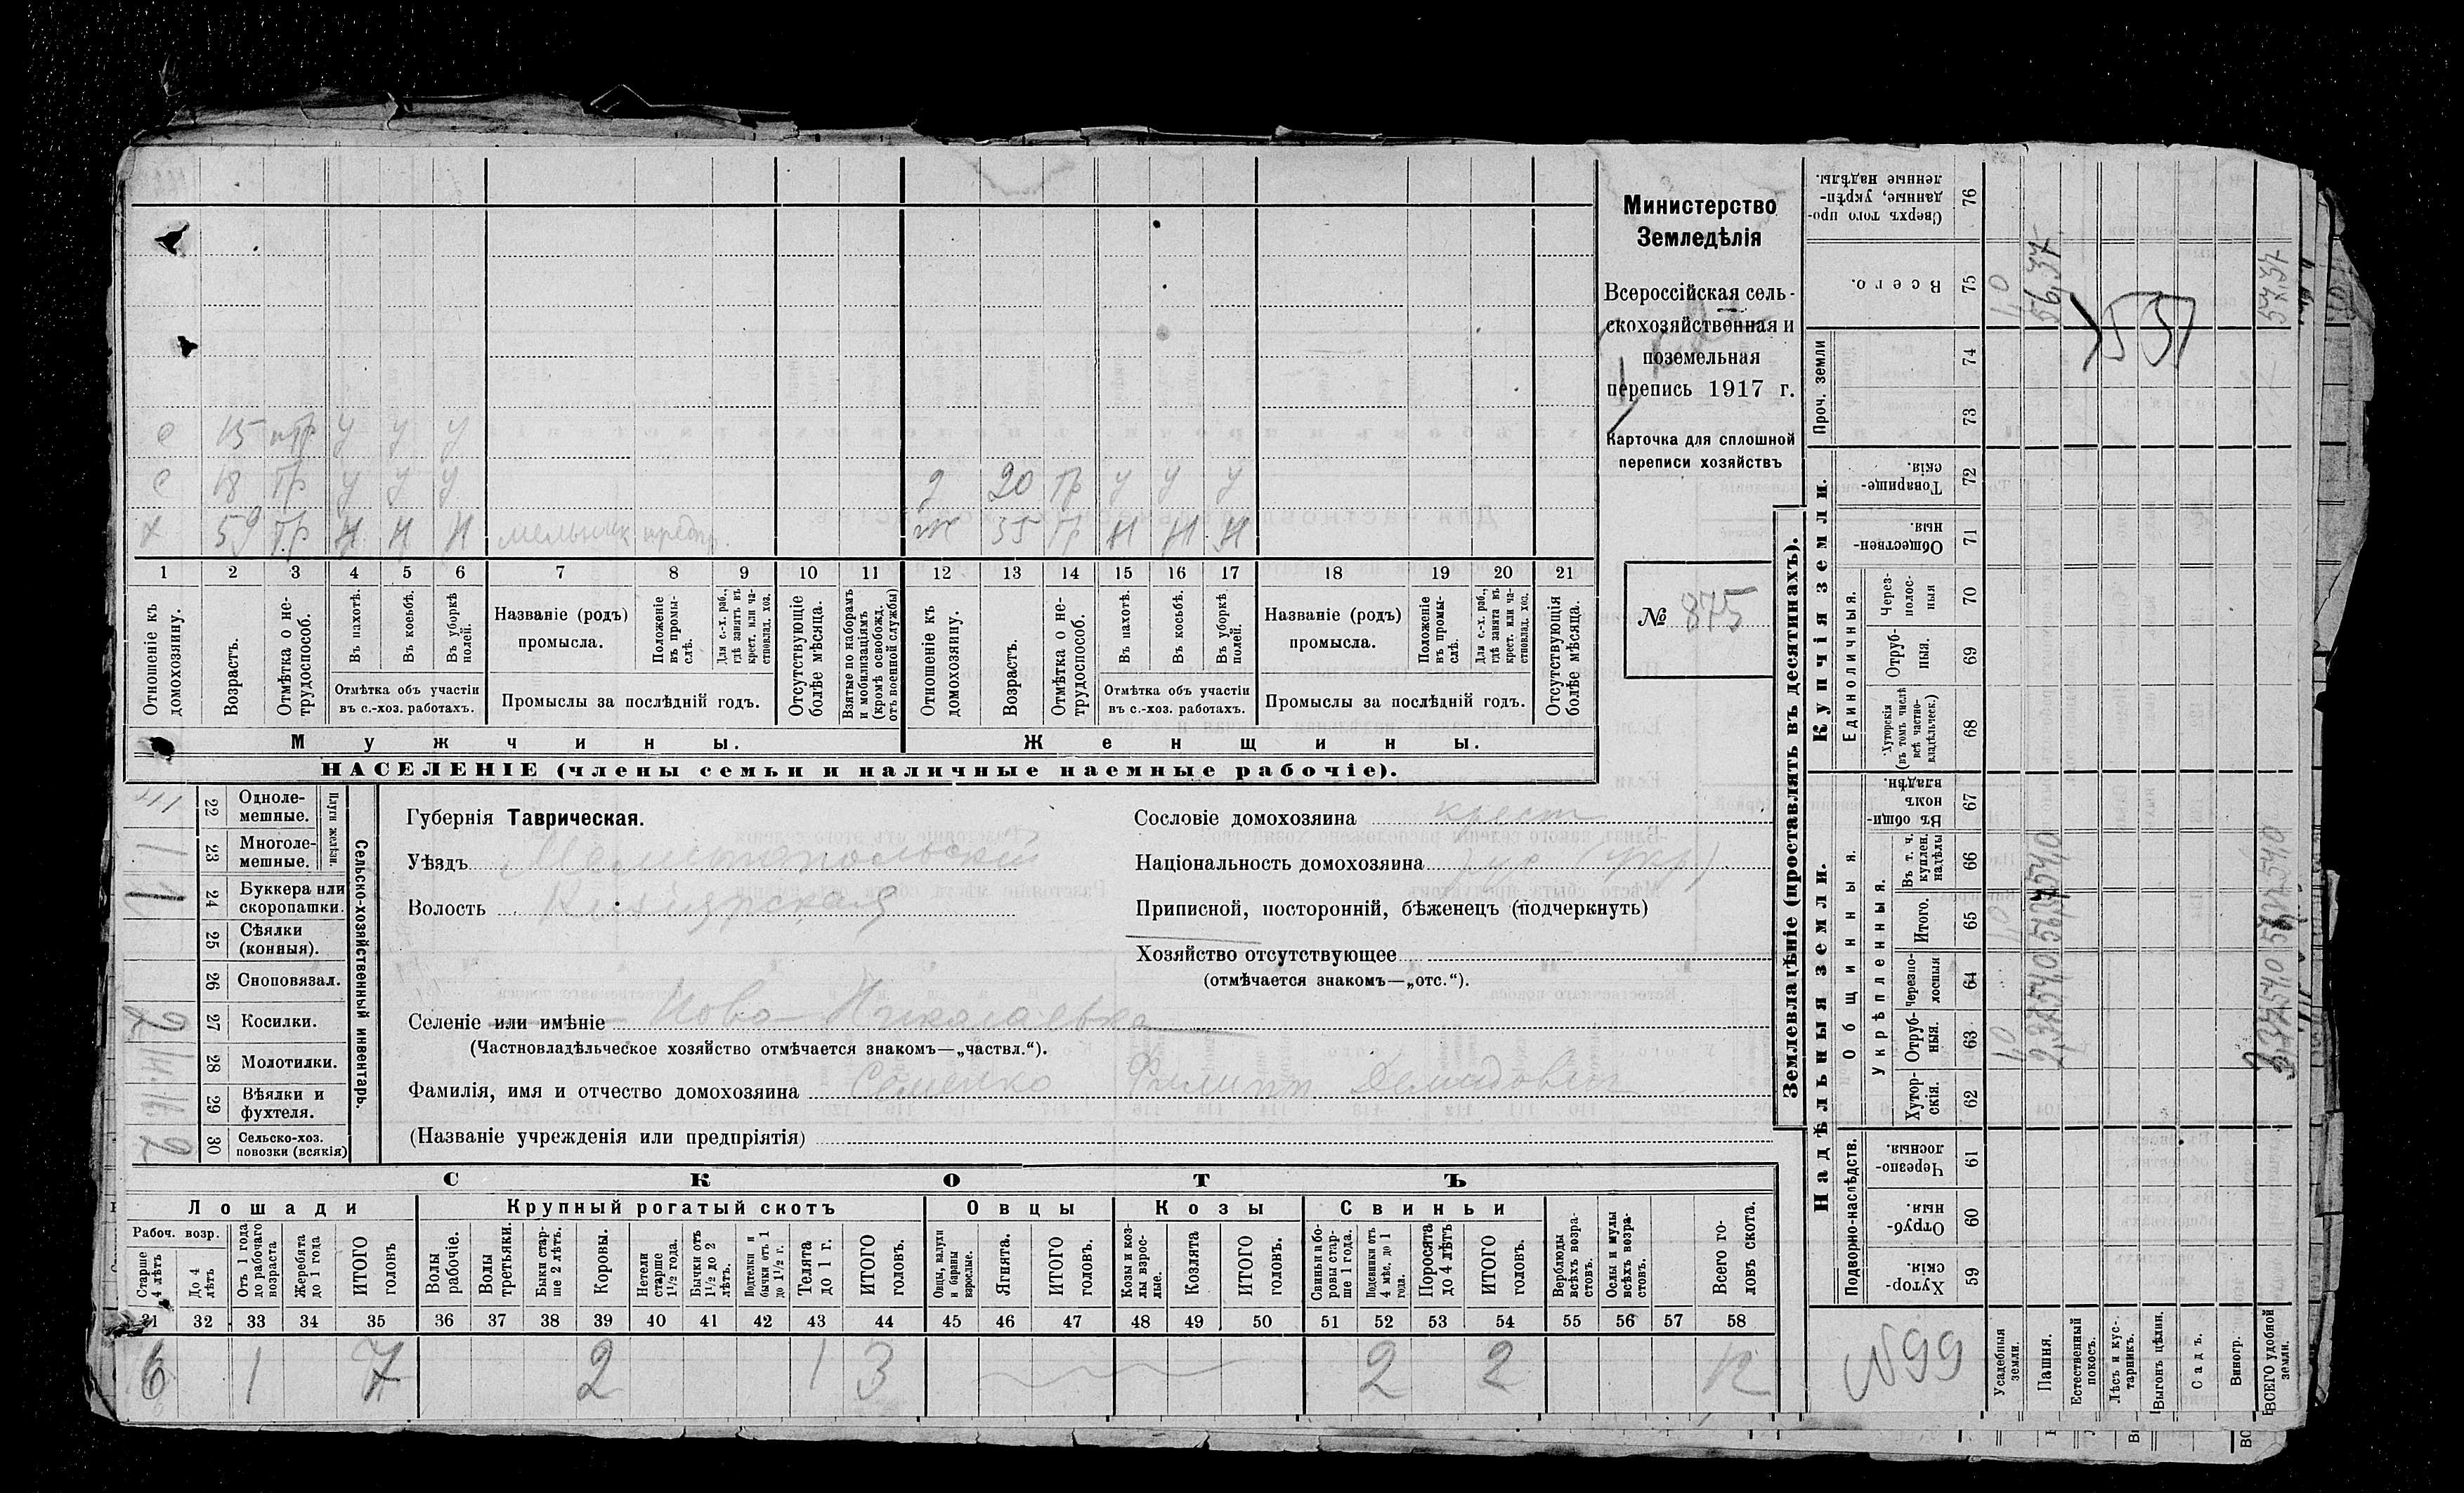 Министерство
Земледѣлія
Всероссійская сель-
скохозяйственная и
поземельная
перепись 1917 г.
Карточка для сплошной
переписи хозяйствъ
№ 875
с 15 птр у у у
с 18 тр у у у
х 59 тр н н н мельник предп.
д 20 тр у у у
ж 35 тр н н н
1 2 3 4 5 6 7 8 9 10 11 12 13 14 15 16 17 18 19 20 21
Отношеніе къ домохозяину.
Возрастъ.
Отмѣтка о не-трудоспособ.
Въ пахотѣ.
Въ косьбѣ.
Въ уборкѣ полей.
Отмѣтка объ участіи
въ с.-хоз. работахъ.
Названіе (родъ)
промысла.
Положеніе въ промы-слѣ.
Для с.-х. раб., гдѣ занятъ въ крест. или ча-стновлад. хоз.
Промыслы за послѣдній годъ.
Отсутствующіе болѣе мѣсяца.
Взятые по наборамъ и мобилизаціямъ (кромѣ освобожд. отъ военной службы)
Отношеніе къ домохозяину.
Возрастъ.
Отмѣтка о не-трудоспособ.
Въ пахотѣ.
Въ косьбѣ.
Въ уборкѣ полей.
Отмѣтка объ участіи
въ с.-хоз. работахъ.
Названіе (родъ)
промысла.
Положеніе въ промы-слѣ.
Для с.-х. раб., гдѣ занята въ крест. или ча-стновлад. хоз.
Промыслы за послѣдній годъ.
Отсутствующія болѣе мѣсяца.
Мужчины.
Женщины.
НАСЕЛЕНІЕ (члены семьи и наличные наемные рабочіе).
Сельско-хозяйственный инвентарь.
Плуги желѣзн.
22 Одноле-мешные.
1 23 Многоле-мешные.
1 24 Буккера или скоропашки.
25 Сѣялки (конныя).
26 Сноповязал.
27 Косилки.
28 Молотилки.
29 Вѣялки и фухтеля.
2 30 Сельско-хоз. повозки (всякія)
Губернія Таврическая.
Уѣздъ Мелитопольскій
Волость Кизіярская
Сословіе домохозяина крест
Національность домохозяина рус (укр)
Приписной, посторонній, бѣженецъ (подчеркнуть)
Хозяйство отсутствующее
(отмѣчается знакомъ—„отс.“).
Селеніе или имѣніе Ново-Николаевка
(Частновладѣльческое хозяйство отмѣчается знакомъ—„частвл.“).
Фамилія, имя и отчество домохозяина Семенко Филипп Демидович
(Названіе учрежденія или предпріятія)
СКОТЪ
Лошади
Крупный рогатый скотъ
Овцы
Козы
Свиньи
Рабоч. возр.
Старше 4 лѣтъ
До 4 лѣтъ
Отъ 1 года до рабочаго возраста
Жеребята до 1 года
ИТОГО головъ
Волы рабочіе.
Волы третьяки.
Быки стар-ше 2 лѣтъ.
Коровы.
Нетели старше 1½ года.
Бычки отъ 1½ до 2 лѣтъ.
Подтелки и бычки отъ 1 до 1½ г.
Телята до 1 г.
ИТОГО головъ.
Овцы, валухи и бараны взрослые.
Ягнята.
ИТОГО головъ.
Козы и коз-лы взрос-лые.
Козлята
ИТОГО головъ.
Свиньи и бо-ровы стар-ше 1 года.
Подсвинки отъ 4 мѣс. до 1 года.
Поросята до 4 лѣтъ
ИТОГО головъ.
Верблюды всѣхъ возра-стовъ.
Ослы и мулы всѣхъ возра-стовъ.
Всего го-ловъ скота.
31 32 33 34 35 36 37 38 39 40 41 42 43 44 45 46 47 48 49 50 51 52 53 54 55 56 57 58
6 1 7 2 1 3 2 2 12
Землевладѣніе (проставлять въ десятинахъ).
Надѣльныя земли.
Купчія земли.
Проч. земли
Подворно-наслѣдств.
Общинныя.
Укрѣпленныя.
Единоличныя.
76 Сверхъ того про-данные, укрѣп-ленные надѣлы.
75 Всего.
74
73
72 Товарище-скія.
71 Обществен-ныя.
70 Через-полос-ныя
69 Отруб-ныя.
68 Хуторскія (въ томъ числѣ всѣ частно-владѣльческ.)
67 Въ общин-номъ владѣн.
66 Въ т. ч. куплен. надѣлы
65 Итого.
64 Черезпо-лосныя
63 Отруб-ныя.
62 Хутор-скія.
61 Черезпо-лосныя
60 Отруб-ныя.
59 Хутор-скія.
Усадебныя земли.
Пашня.
Естественный покосъ.
Лѣсъ и кус-тарникъ.
Выгонъ цѣлин.
Садъ.
Виногр.
ВСЕГО удобной земли.
56,37
57,37
N99